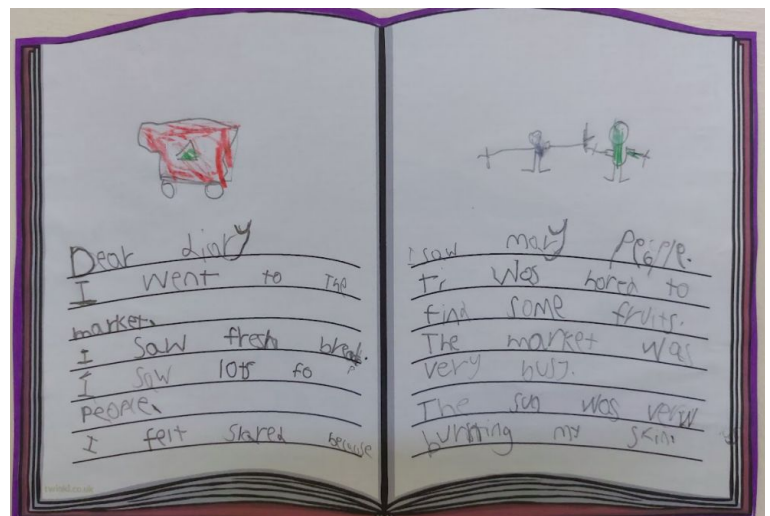 Dear diary
I went to The
market.
I saw fresh bread.
I saw lots fo
people.
I felt skared because
I saw many people.
ti was hored to
find some fruits.
The market was
very busy.
The sun was veriy
burning my skin.